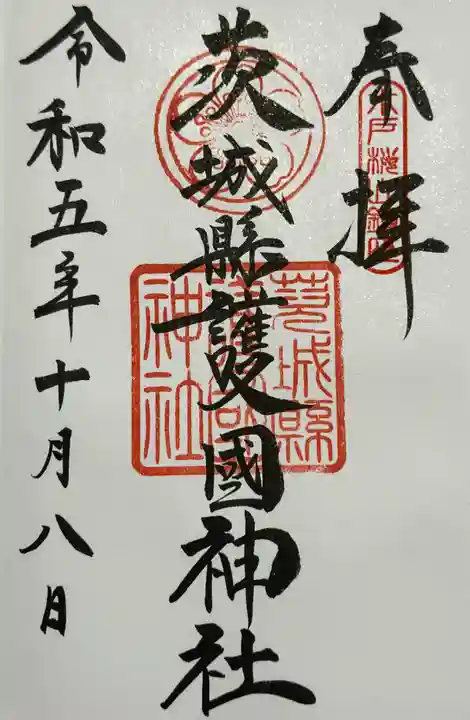 奉拝
水戸桜山鎮座
茨城縣護國神社
茨城縣護國神社
令和五年十月八日